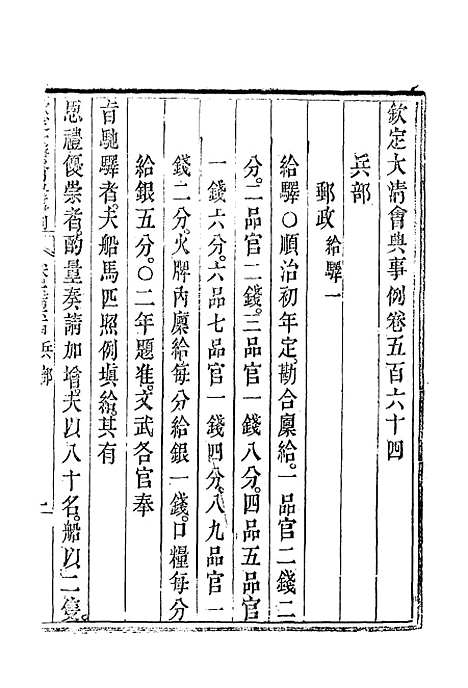 欽定大清會典事例卷五百六十四
兵部
郵政 給驛一
給驛○順治初年定。勘合廩給。一品官二錢二
分。二品官二錢。三品官一錢八分。四品五品官
一錢六分。六品七品官一錢四分。八九品官一
錢二分。火牌內廩給每分給銀一錢。口糧每分
給銀五分。○二年題准。文武各官奉
旨馳驛者。夫船馬匹照例填給。其有
恩禮優崇者。酌量奏請加增。夫以八十名。船以二隻。